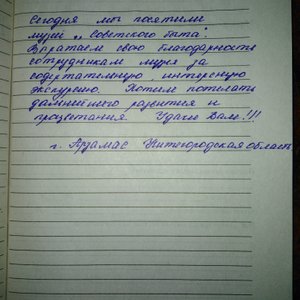 Сегодня мы посетили
музей „Советского быта".
Выражаем свою благодарность
сотрудникам музея за
содержательную, интересную
экскурсию. Хотим пожелать
дальнейшего развития и
процветания Удачи Вам!!!
г. Арзамас Нижегородская область